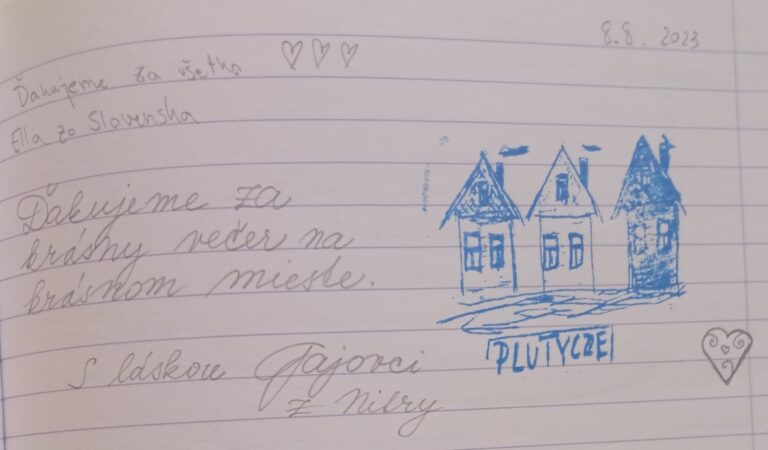 8.8. 2023
Ďakujeme za všetko
Ella zo Slovenska
Ďakujeme za
krásny večer na
krásnom mieste.
S láskou Gajovci
z Nitry
PLUTYCZE